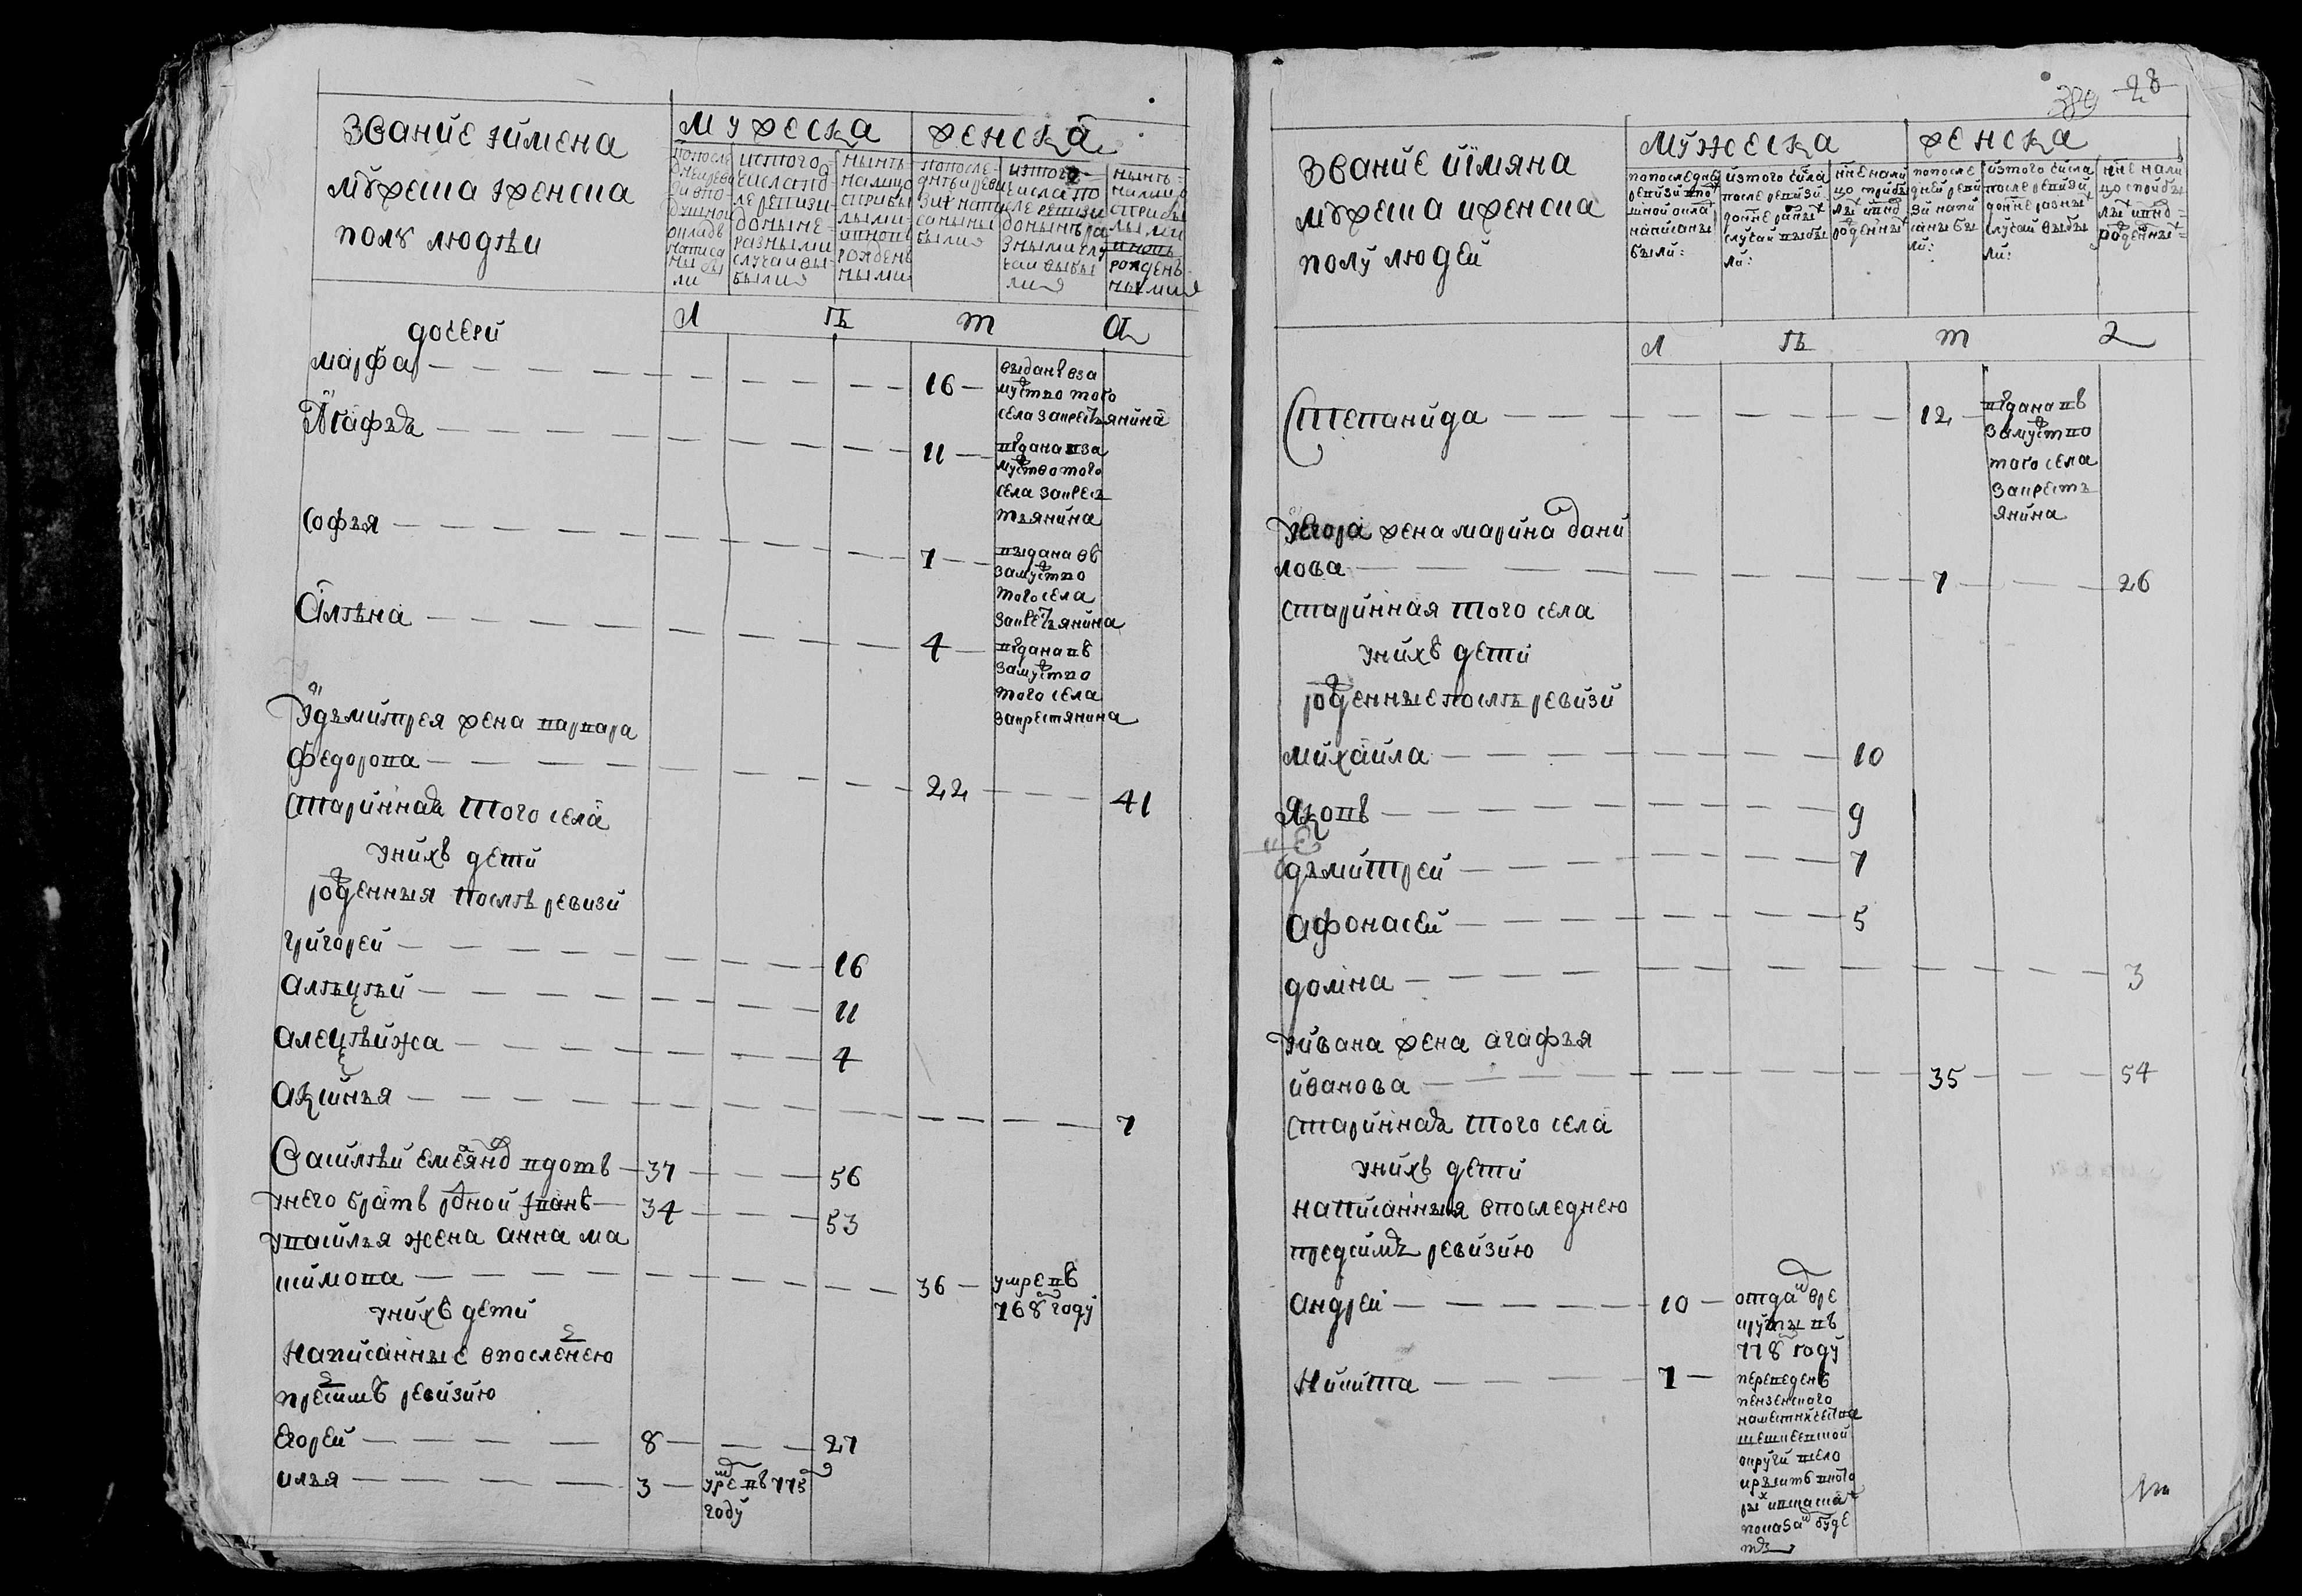 звание иимена
мужеска иженска
полу людѣи
мужеска
женска
попосле
днеи реви
зи впо
душном
окладѣ
написа
ны бы
ли
истого
числа по
ле ревизи
доныне
разными
случаи вы
были
нынѣ
налицо
сприбы
лыми
ивновь
рожден
ными
попосле
днѣи реви
зи напи
саныи
были
изтого
числа по
сле ревизи
донынѣ ра
зными слу
чаи выбы
ли
нынѣ
налицо
сприбы
лыми
ивновь
рожден
ными
л ѣ т а
дочери
марфа 16 выданъ вза
мужство того
села закрестьянина
Агафья 11 выдана вза
мужство того
села закресть
тьянина
софья 7 выдана въ
замужство
того села
закрестьянина
Алѣна 4 выдана въ
замужство
того села
закрестянина
Удьмитрея жена варвара
федорова 22 41
стариннаа того села
унихъ дети
рожденныя послѣ ревизи
григореи 16
алѣкѣи 11
алекѣижа 4
аксинья 7
Василѣи емельянов вдовъ 37 56
унего братъ родной иванъ 34 53
увасилья жена анна ма
шимова 36 умре въ
768 году
унихъ дети
написанные впоследнею
предсимъ ревизию
егореи 8 27
илья 3 умре въ 775
году
380 28
звание иїмяна
мужеска иженска
полу людеи
мужеска
женска
попоследнеи
ревизи впод
шной оклад
написаны
были:
изтого числа
после ревизи
доине разных
случаи выбы
ли:
нне нали
цо сприбы
лых ивнов
рожденных
попосле
днеи реви
зи напи
саны бы
ли:
изтого числа
после ревизи
доине разных
случаи выбы
ли:
нне нали
цо сприбы
лых ивнов
рожденных
л ѣ т а
Степанида 12 выдана въ
замужство
того села
закресть
янина
Уегора жена марина дани
лова 7 26
старинная того села
унихъ дети
рожденные послѣ ревизи
михаила 10
Яковъ 9
дьмитреи 7
афонасеи 5
домна 3
Уивана жена агафья
иванова 35 54
стариннаа того села
унихъ дети
написанныя впоследнею
предсимъ ревизию
андреи 10 отдан вре
круты въ
778 году
Никита 7 переведенъ
пензенскаго
наместничества
округи всело
показан буде